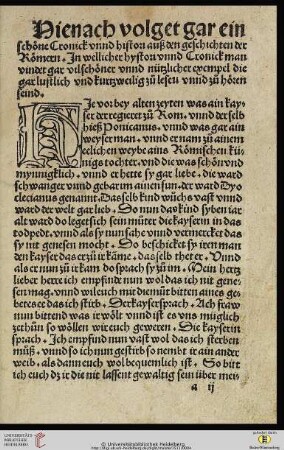 Hienach volget gar ein
schöne Cronick vnnd histori auß den geschichten der
Römern. In wellicher hystori vnnd Cronick man
vindet gar vil schöner vnnd nützlicher exempel die
gar lustlich vnd kurtzweilig zů lesen vnnd zů hören
seind.
HIe vor bey alten zeyten was ain kay
ser der regieret zů Rom. vnnd der selb
hieß Poncianus. vnnd was gar ain
weyser man. vnnd er nam zů ainem
eelichen weyb ains Römischen kü⸗
nigs tochter. vnd die was schön vnd
mynnigklich. vnnd er hette sy gar liebe. die ward
schwanger vnnd gebar im ainen sun. der ward Dyo
clecianus genannt. Das selb kind wůchs vast vnnd
ward der welt gar lieb. So nun das kind syben iar
alt ward do leget sich sein můter die kayserin in das
todpedt. vnnd als sy nun sahe vnnd vermercket das
sy nit genesen mocht. So beschicket sy iren man
den kayser das er zů ir käme. das selb thet er. Vnnd
als er nun zů ir kam do sprach sy zů im. Mein hertz
lieber herre ich empfinde nun wol das ich nit gene⸗
sen mag. vnnd wil euch mit diemüt bitten aines ge⸗
betes er das ich stirb. Der kayser sprach. Ach fraw
nun bittend was ir wölt vnnd ist es vns müglich
zethůn so wöllen wir euch geweren. Die kayserin
sprach. Ich empfind nun vast wol das ich sterben
můß. vnnd so ich nun gestirb so nembt ir ain ander
weib. als dann euch wol bequemlich ist. So bitt
ich euch dz ir die nit lassent gewaltig sein über mei
a ij
© Universitätsbibliothek Heidelberg